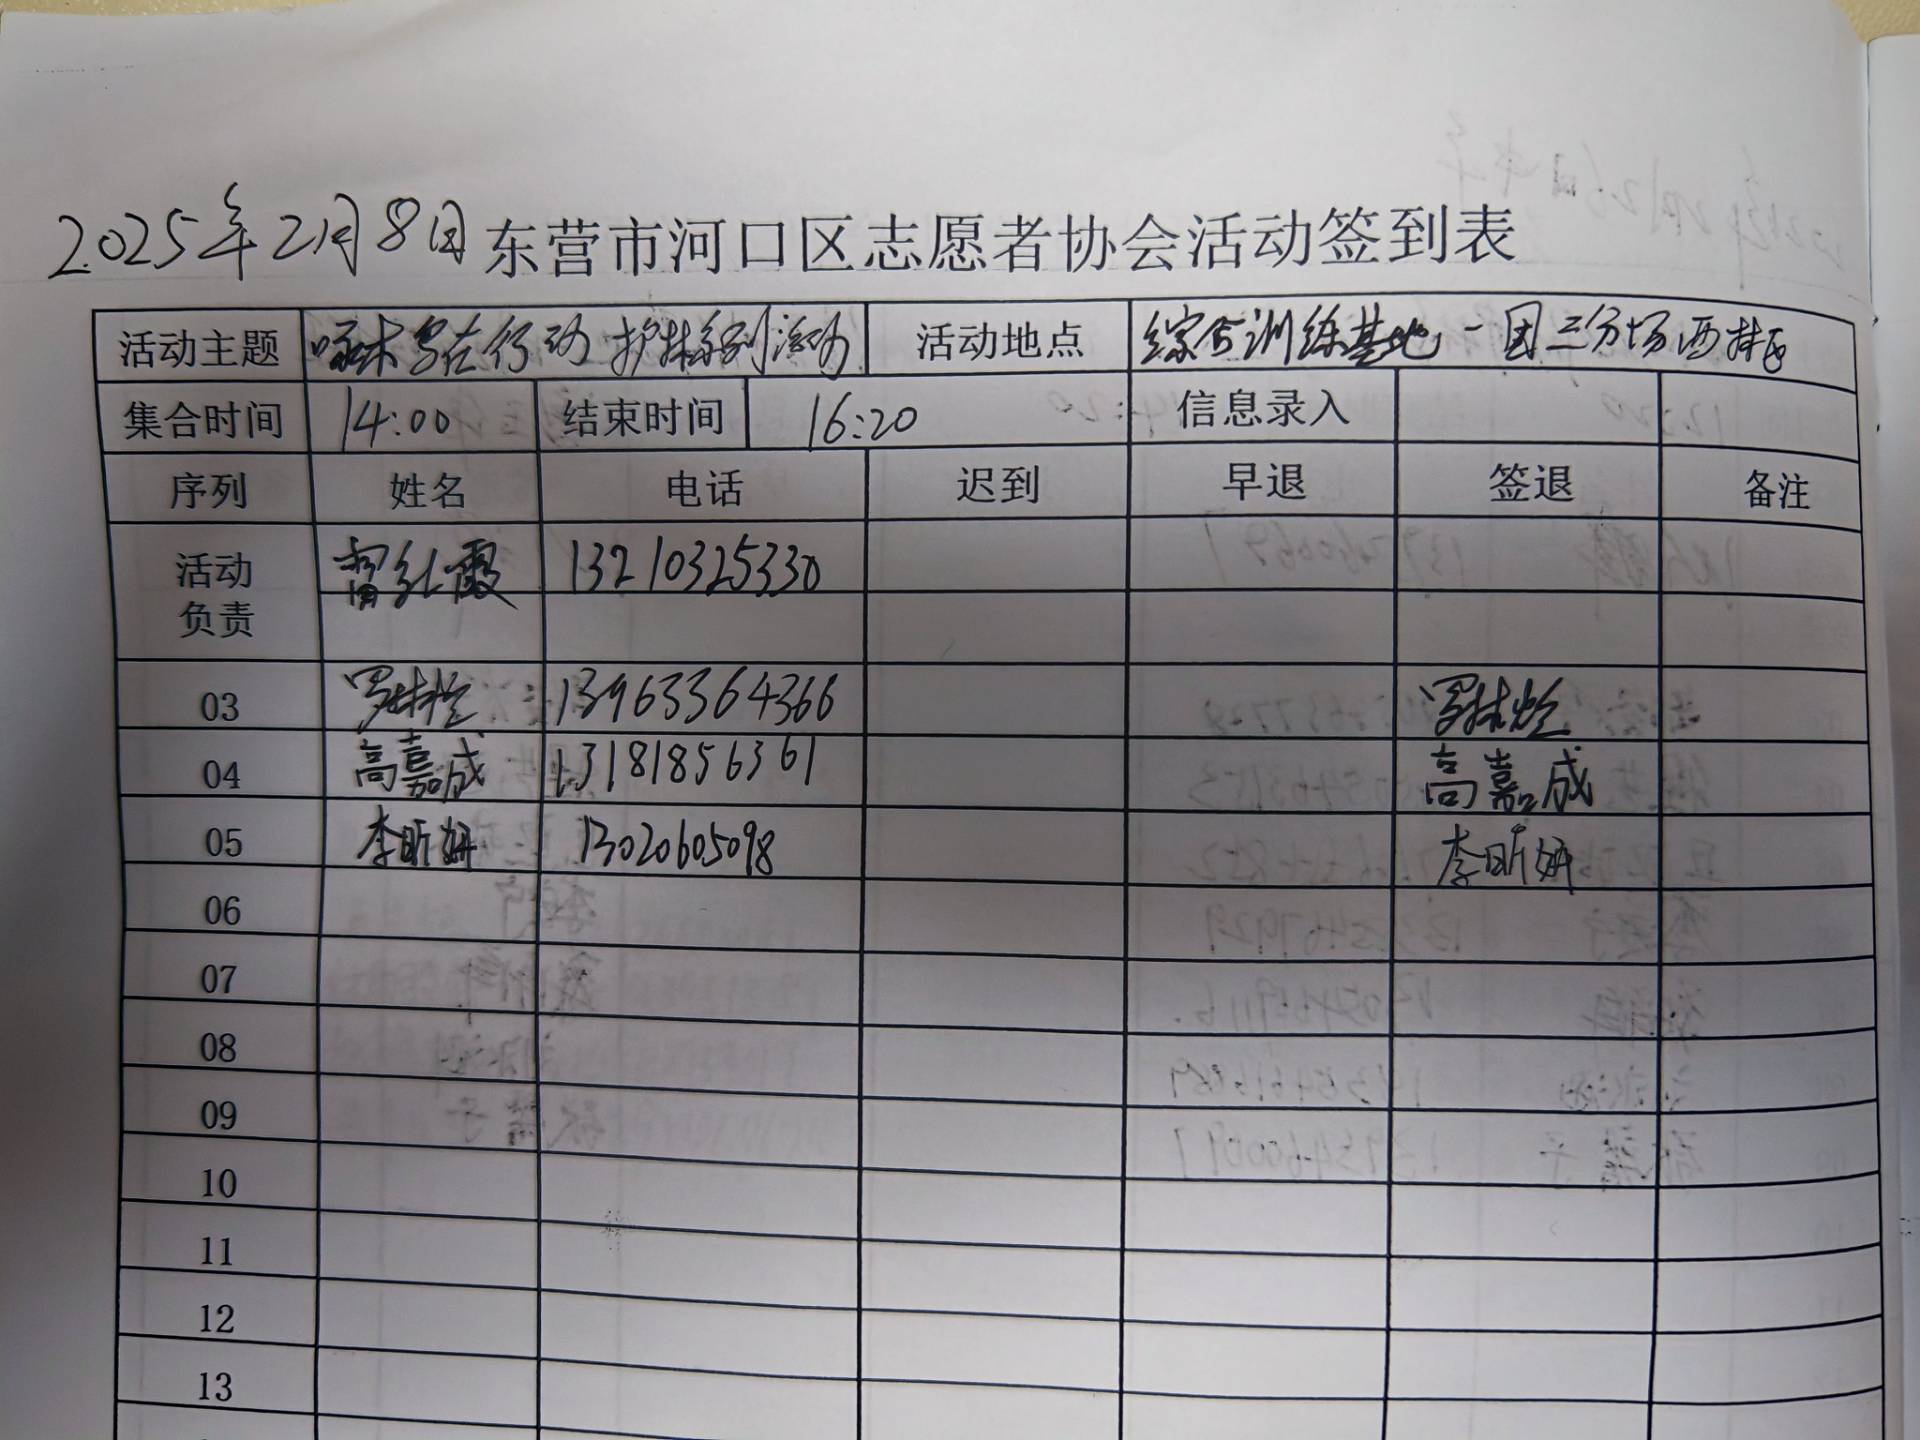 2025年2月8日 东营市河口区志愿者协会活动签到表
活动主题 啄木鸟在行动 护林系列活动 活动地点 综合训练基地一团三分场西林区
集合时间 14:00 结束时间 16:20 信息录入
序列 姓名 电话 迟到 早退 签退 备注
活动负责 红霞 13210325330
03 罗林 13963364366 罗林
04 高嘉成 13181856361 高嘉成
05 李昕妍 13020605098 李昕妍
06
07
08
09
10
11
12
13